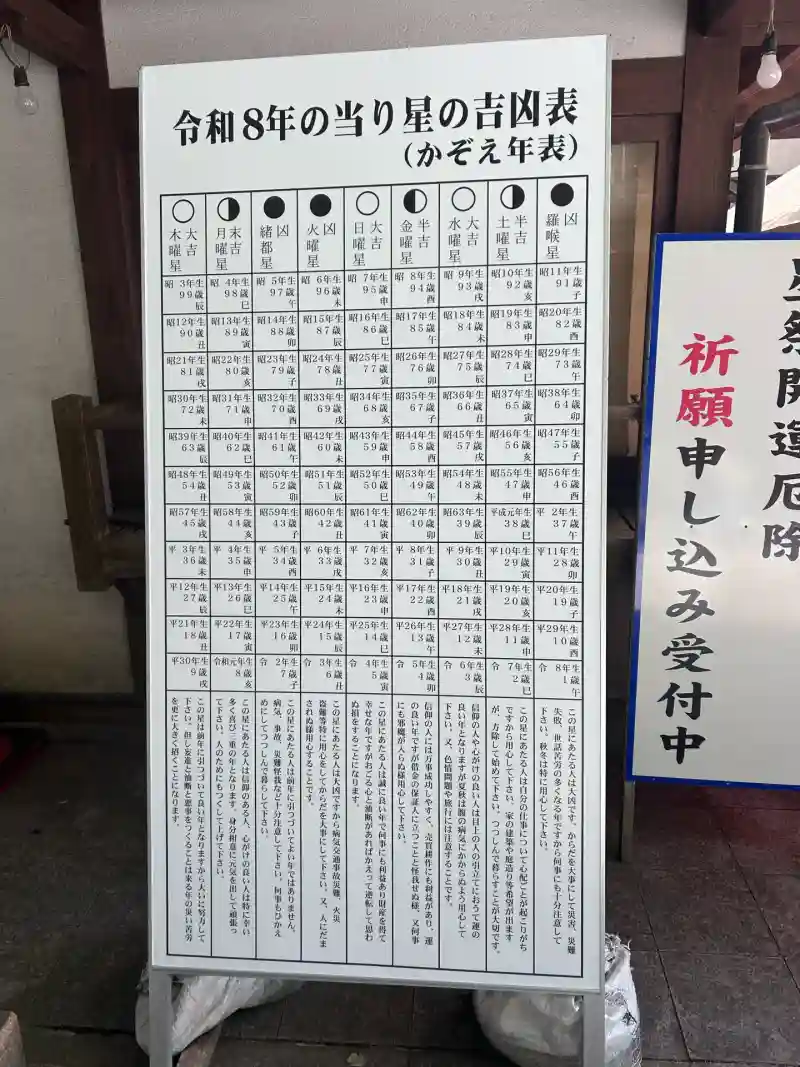 令和8年の当り星の吉凶表
(かぞえ年表)
凶
羅喉星
昭11年生 91歳 子
昭20年生 82歳 酉
昭29年生 73歳 午
昭38年生 64歳 卯
昭47年生 55歳 子
昭56年生 46歳 酉
平 2年生 37歳 午
平11年生 28歳 卯
平20年生 19歳 子
平29年生 10歳 酉
令 8年生 1歳 午
この星にあたる人は大凶です。からだを大事にして災害、災難
失敗、世話苦労の多くなる年ですから何事にも十分注意して
下さい。秋冬は特に用心して下さい。
半吉
土曜星
昭10年生 92歳 亥
昭19年生 83歳 申
昭28年生 74歳 巳
昭37年生 65歳 寅
昭46年生 56歳 亥
昭55年生 47歳 申
平成元年生 38歳 巳
平10年生 29歳 寅
平19年生 20歳 亥
平28年生 11歳 申
令 7年生 2歳 巳
この星にあたる人は自分の仕事について心配ごとが起こりがち
ですから用心して下さい。家の建築や庭造り等希望が出ます
が、方除して始めて下さい。つつしんで暮らすことが大切です。
大吉
水曜星
昭 9年生 93歳 戌
昭18年生 84歳 未
昭27年生 75歳 辰
昭36年生 66歳 丑
昭45年生 57歳 戌
昭54年生 48歳 未
昭63年生 39歳 辰
平 9年生 30歳 丑
平18年生 21歳 戌
平27年生 12歳 未
令 6年生 3歳 辰
信仰の人や心がけの良い人は目上の人の引立てにおうて運の
良い年となりますが夏秋は腹の病気にかからぬよう用心して
下さい。又、色情問題や旅行には注意することです。
半吉
金曜星
昭 8年生 94歳 酉
昭17年生 85歳 午
昭26年生 76歳 卯
昭35年生 67歳 子
昭44年生 58歳 酉
昭53年生 49歳 午
昭62年生 40歳 卯
平 8年生 31歳 子
平17年生 22歳 酉
平26年生 13歳 午
令 5年生 4歳 卯
信仰の人には万事成功しやすく、売買耕作にも利益があり、運
の良い年ですが借金の保証人に立つことと怪我せぬ様、又何事
にも邪魔が入らぬ様用心して下さい。
大吉
日曜星
昭 7年生 95歳 申
昭16年生 86歳 巳
昭25年生 77歳 寅
昭34年生 68歳 亥
昭43年生 59歳 申
昭52年生 50歳 巳
昭61年生 41歳 寅
平 7年生 32歳 亥
平16年生 23歳 申
平25年生 14歳 巳
令 4年生 5歳 寅
この星にあたる人は誠に良い年で何事にも利益あり財産を得て
幸せな年ですがおごる心と油断があればかえって逆転して思わ
ぬ損をすることになります。
凶
火曜星
昭 6年生 96歳 未
昭15年生 87歳 辰
昭24年生 78歳 丑
昭33年生 69歳 戌
昭42年生 60歳 未
昭51年生 51歳 辰
昭60年生 42歳 丑
平 6年生 33歳 戌
平15年生 24歳 未
平24年生 15歳 辰
令 3年生 6歳 丑
この星にあたる人は大凶ですから病気交通事故災難、火災
盗難等特に用心をしてからだを大事にして下さい。又、人にだま
されぬ様用心することです。
凶
緒都星
昭 5年生 97歳 午
昭14年生 88歳 卯
昭23年生 79歳 子
昭32年生 70歳 酉
昭41年生 61歳 午
昭50年生 52歳 卯
昭59年生 43歳 子
平 5年生 34歳 酉
平14年生 25歳 午
平23年生 16歳 卯
令 2年生 7歳 子
この星にあたる人は前年に引つづいてよい年ではありません。
病気、事故、災難怪我など十分注意して下さい。何事もひかえ
めにしてつつしんで暮らして下さい。
末吉
月曜星
昭 4年生 98歳 巳
昭13年生 89歳 寅
昭22年生 80歳 亥
昭31年生 71歳 申
昭40年生 62歳 巳
昭49年生 53歳 寅
昭58年生 44歳 亥
平 4年生 35歳 申
平13年生 26歳 巳
平22年生 17歳 寅
令和元年生 8歳 亥
この星にあたる人は信仰のある人、心がけの良い人は特に幸い
多く喜び二重の年となります。身分相意に元気を出して頑張っ
て下さい。人のためにもつくして上げて下さい。
大吉
木曜星
昭 3年生 99歳 辰
昭12年生 90歳 丑
昭21年生 81歳 戌
昭30年生 72歳 未
昭39年生 63歳 辰
昭48年生 54歳 丑
昭57年生 45歳 戌
平 3年生 36歳 未
平12年生 27歳 辰
平21年生 18歳 丑
平30年生 9歳 戌
この星は前年に引つづいて良い年となりますから大いに努力して
下さい。但し妄進と油断と悪事をつくることは来る年の災い苦労
を更に大きく招くことになります。
星祭開運厄除
祈願申し込み受付中